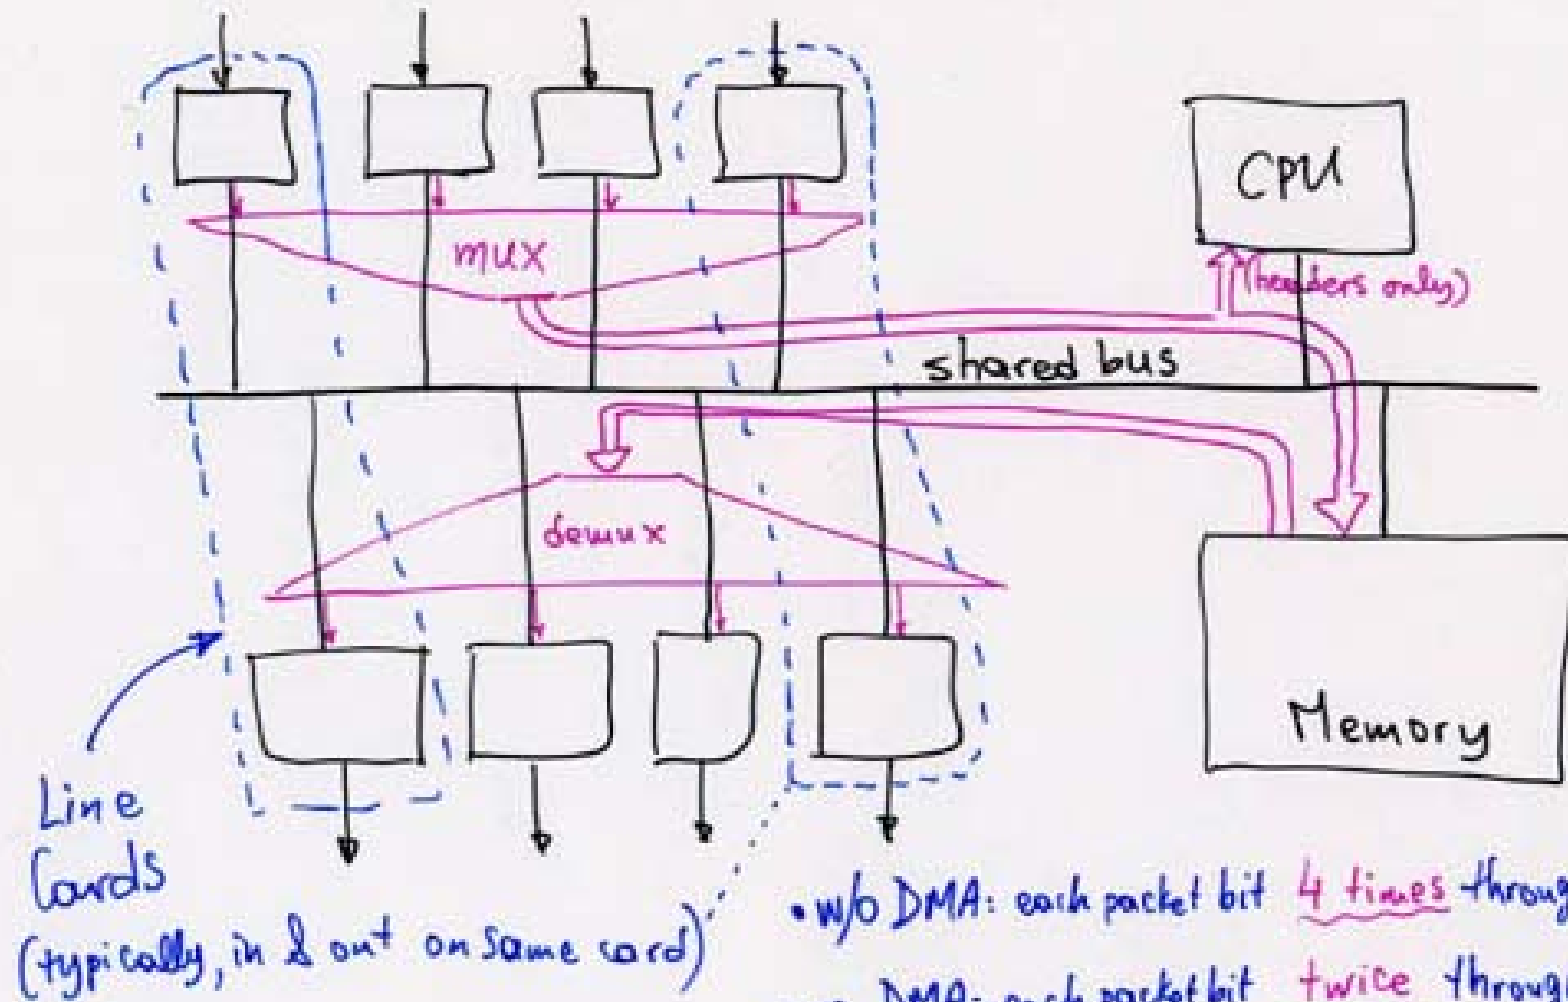 CPU
mux
(headers only)
shared bus
demux
Memory
Line
Cards
(typically, in & out on same card)
• w/o DMA: each packet bit 4 times throug
DMA: each packet bit twice throug